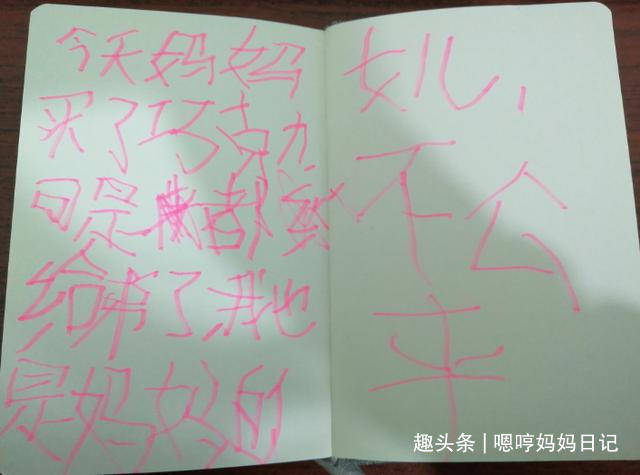 今天妈妈
买了巧克力
日是都
给弟了我也
是妈妈的
女儿,
不公
平
趣头条 | 嗯哼妈妈日记